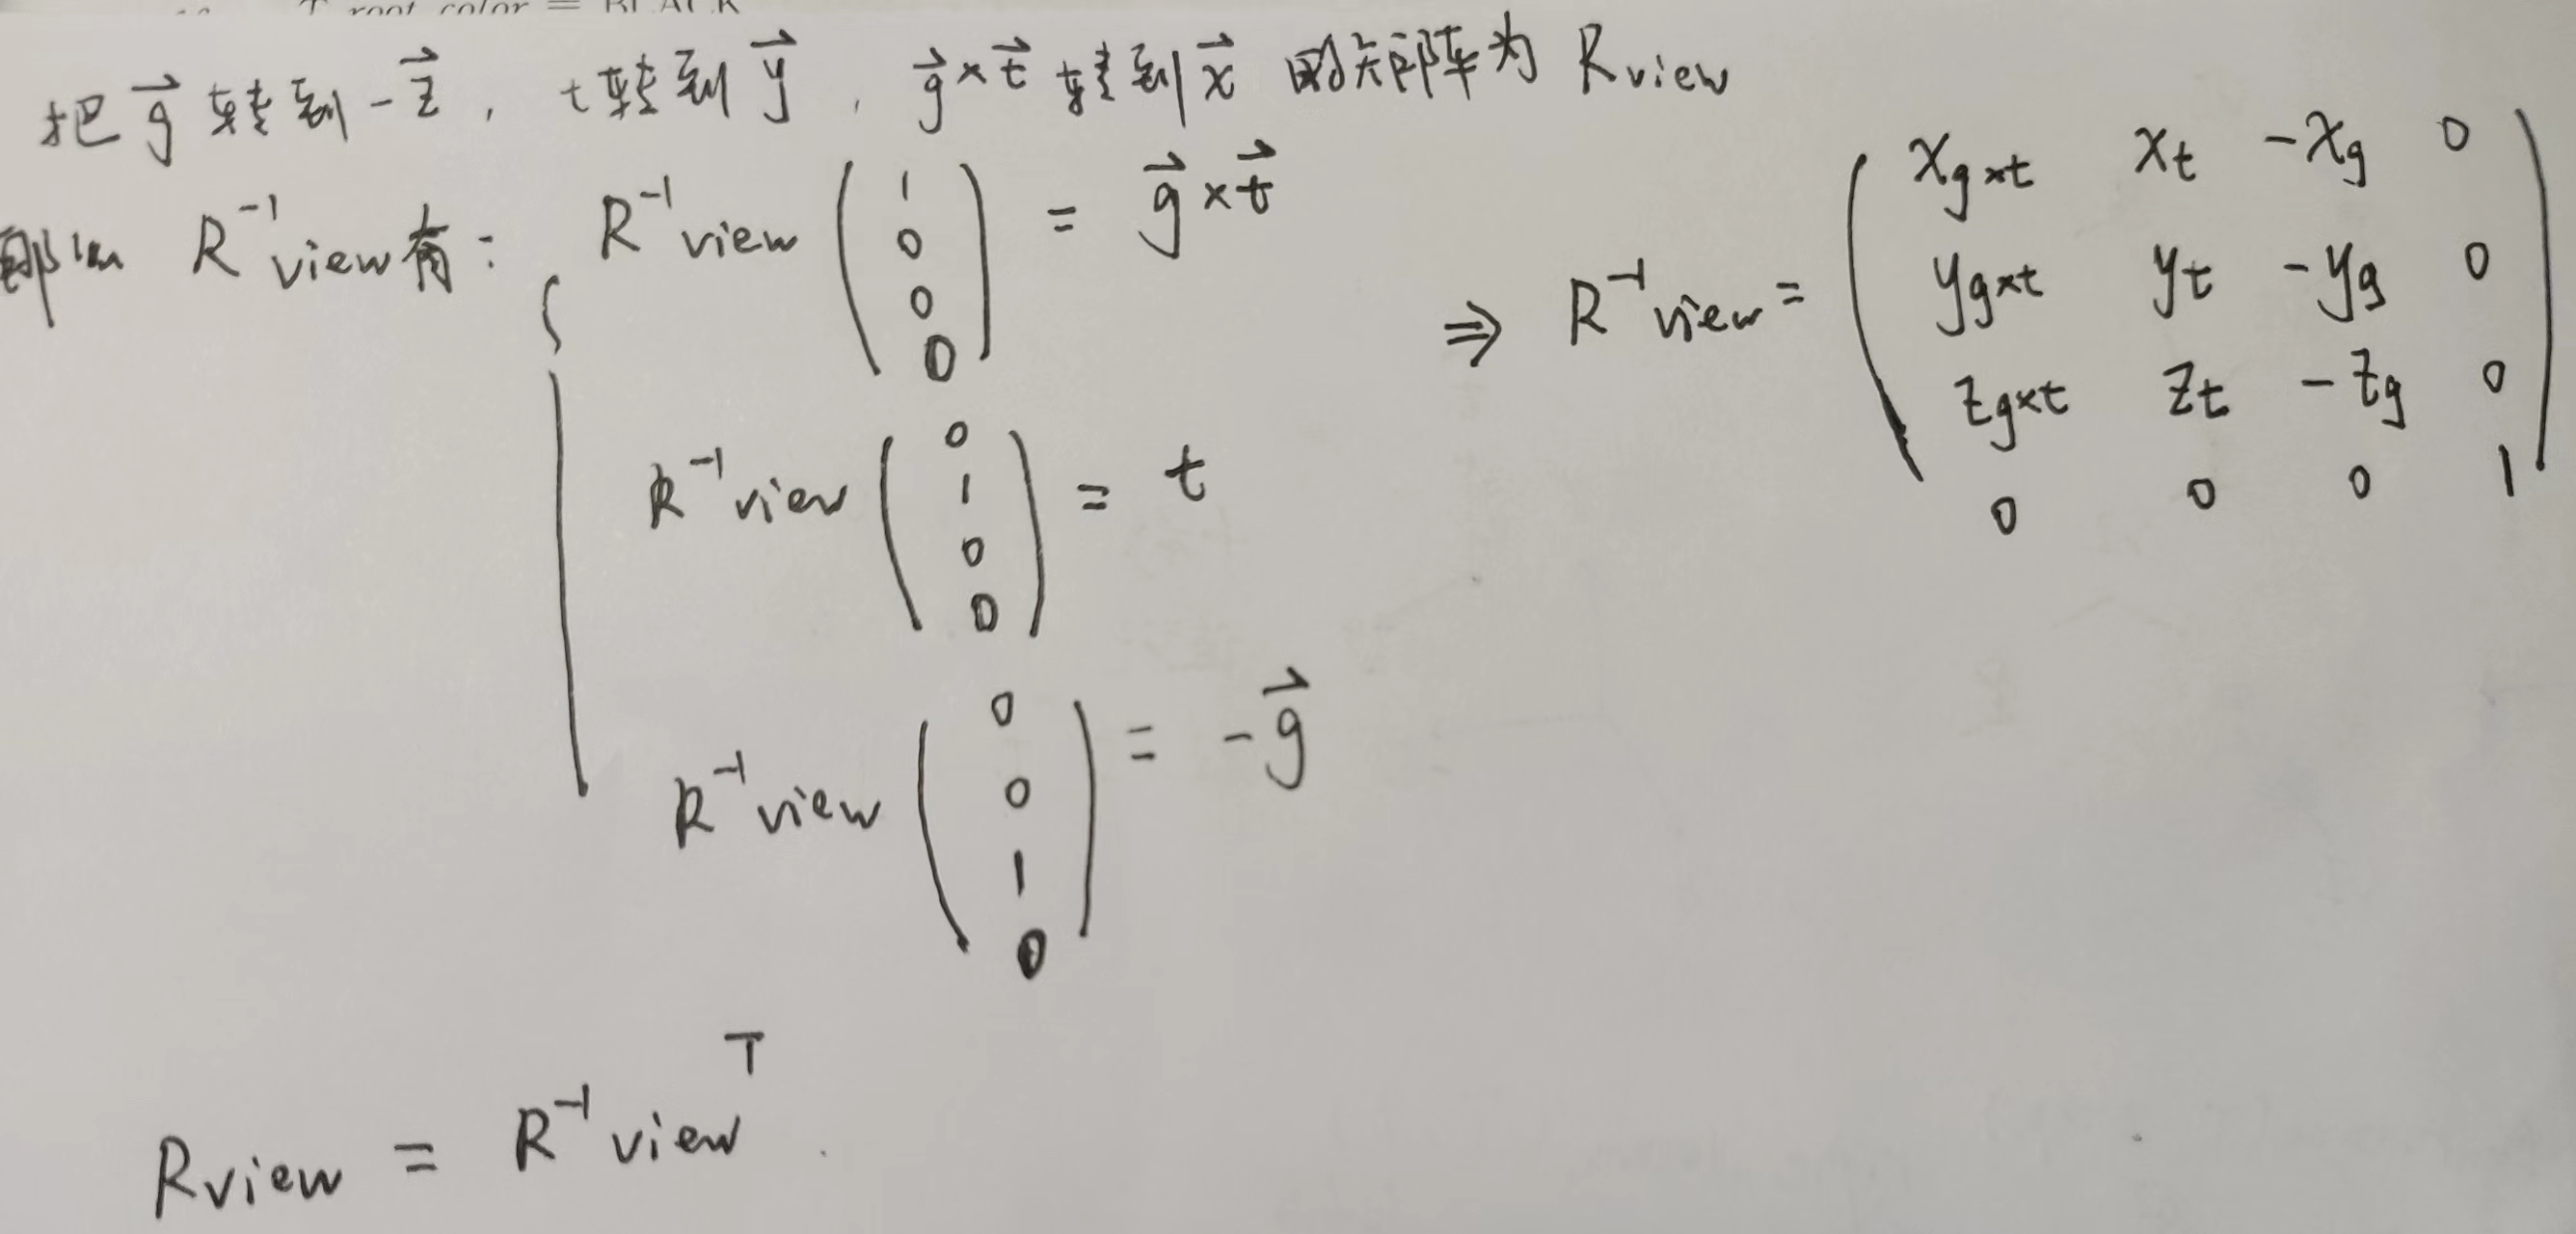 T root color = BLACK
把 g⃗ 转到 -z⃗, t转到 y⃗, g⃗×t⃗ 转到 x⃗ 的矩阵为 Rview
那么 R⁻¹view有: R⁻¹view (1 0 0 0) = g⃗×t⃗
R⁻¹view (0 1 0 0) = t
R⁻¹view (0 0 1 0) = -g⃗
⇒ R⁻¹view =
x_g×t x_t -x_g 0
y_g×t y_t -y_g 0
z_g×t z_t -z_g 0
0 0 0 1
Rview = R⁻¹viewᵀ.